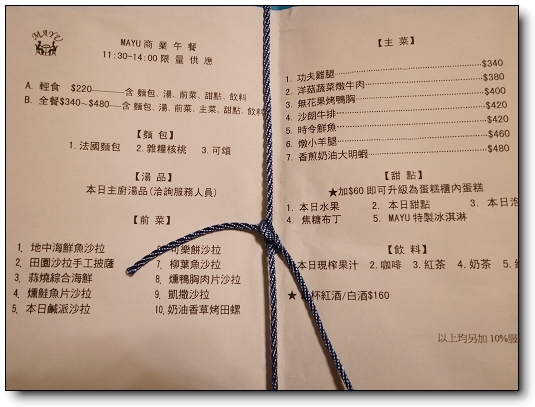 MAYU
MAYU 商業午餐
11:30-14:00 限量供應
A. 輕食 $220——含 麵包、湯、前菜、甜點、飲料
B. 全餐$340~$480——含 麵包、湯、前菜、主菜、甜點、飲料
【麵包】
1. 法國麵包 2. 雜糧核桃 3. 可頌
【湯品】
本日主廚湯品(洽詢服務人員)
【前菜】
1. 地中海鮮魚沙拉
2. 田園沙拉手工披薩
3. 蒜燒綜合海鮮
4. 燻鮭魚片沙拉
5. 本日鹹派沙拉
可樂餅沙拉
7. 柳葉魚沙拉
8. 燻鴨胸肉片沙拉
9. 凱撒沙拉
10. 奶油香草烤田螺
【主菜】
1. 功夫雞腿 $340
2. 洋菇蔬菜燉牛肉 $380
3. 無花果烤鴨胸 $400
4. 沙朗牛排 $420
5. 時令鮮魚 $420
6. 嫩小羊腿 $460
7. 香煎奶油大明蝦 $480
【甜點】
★加$60 即可升級為蛋糕櫃內蛋糕
1. 本日水果 2. 本日甜點 3. 本日
4. 焦糖布丁 5. MAYU 特製冰淇淋
【飲料】
本日現榨果汁 2. 咖啡 3. 紅茶 4. 奶茶 5.
★ 杯紅酒/白酒$160
以上均另加 10%服